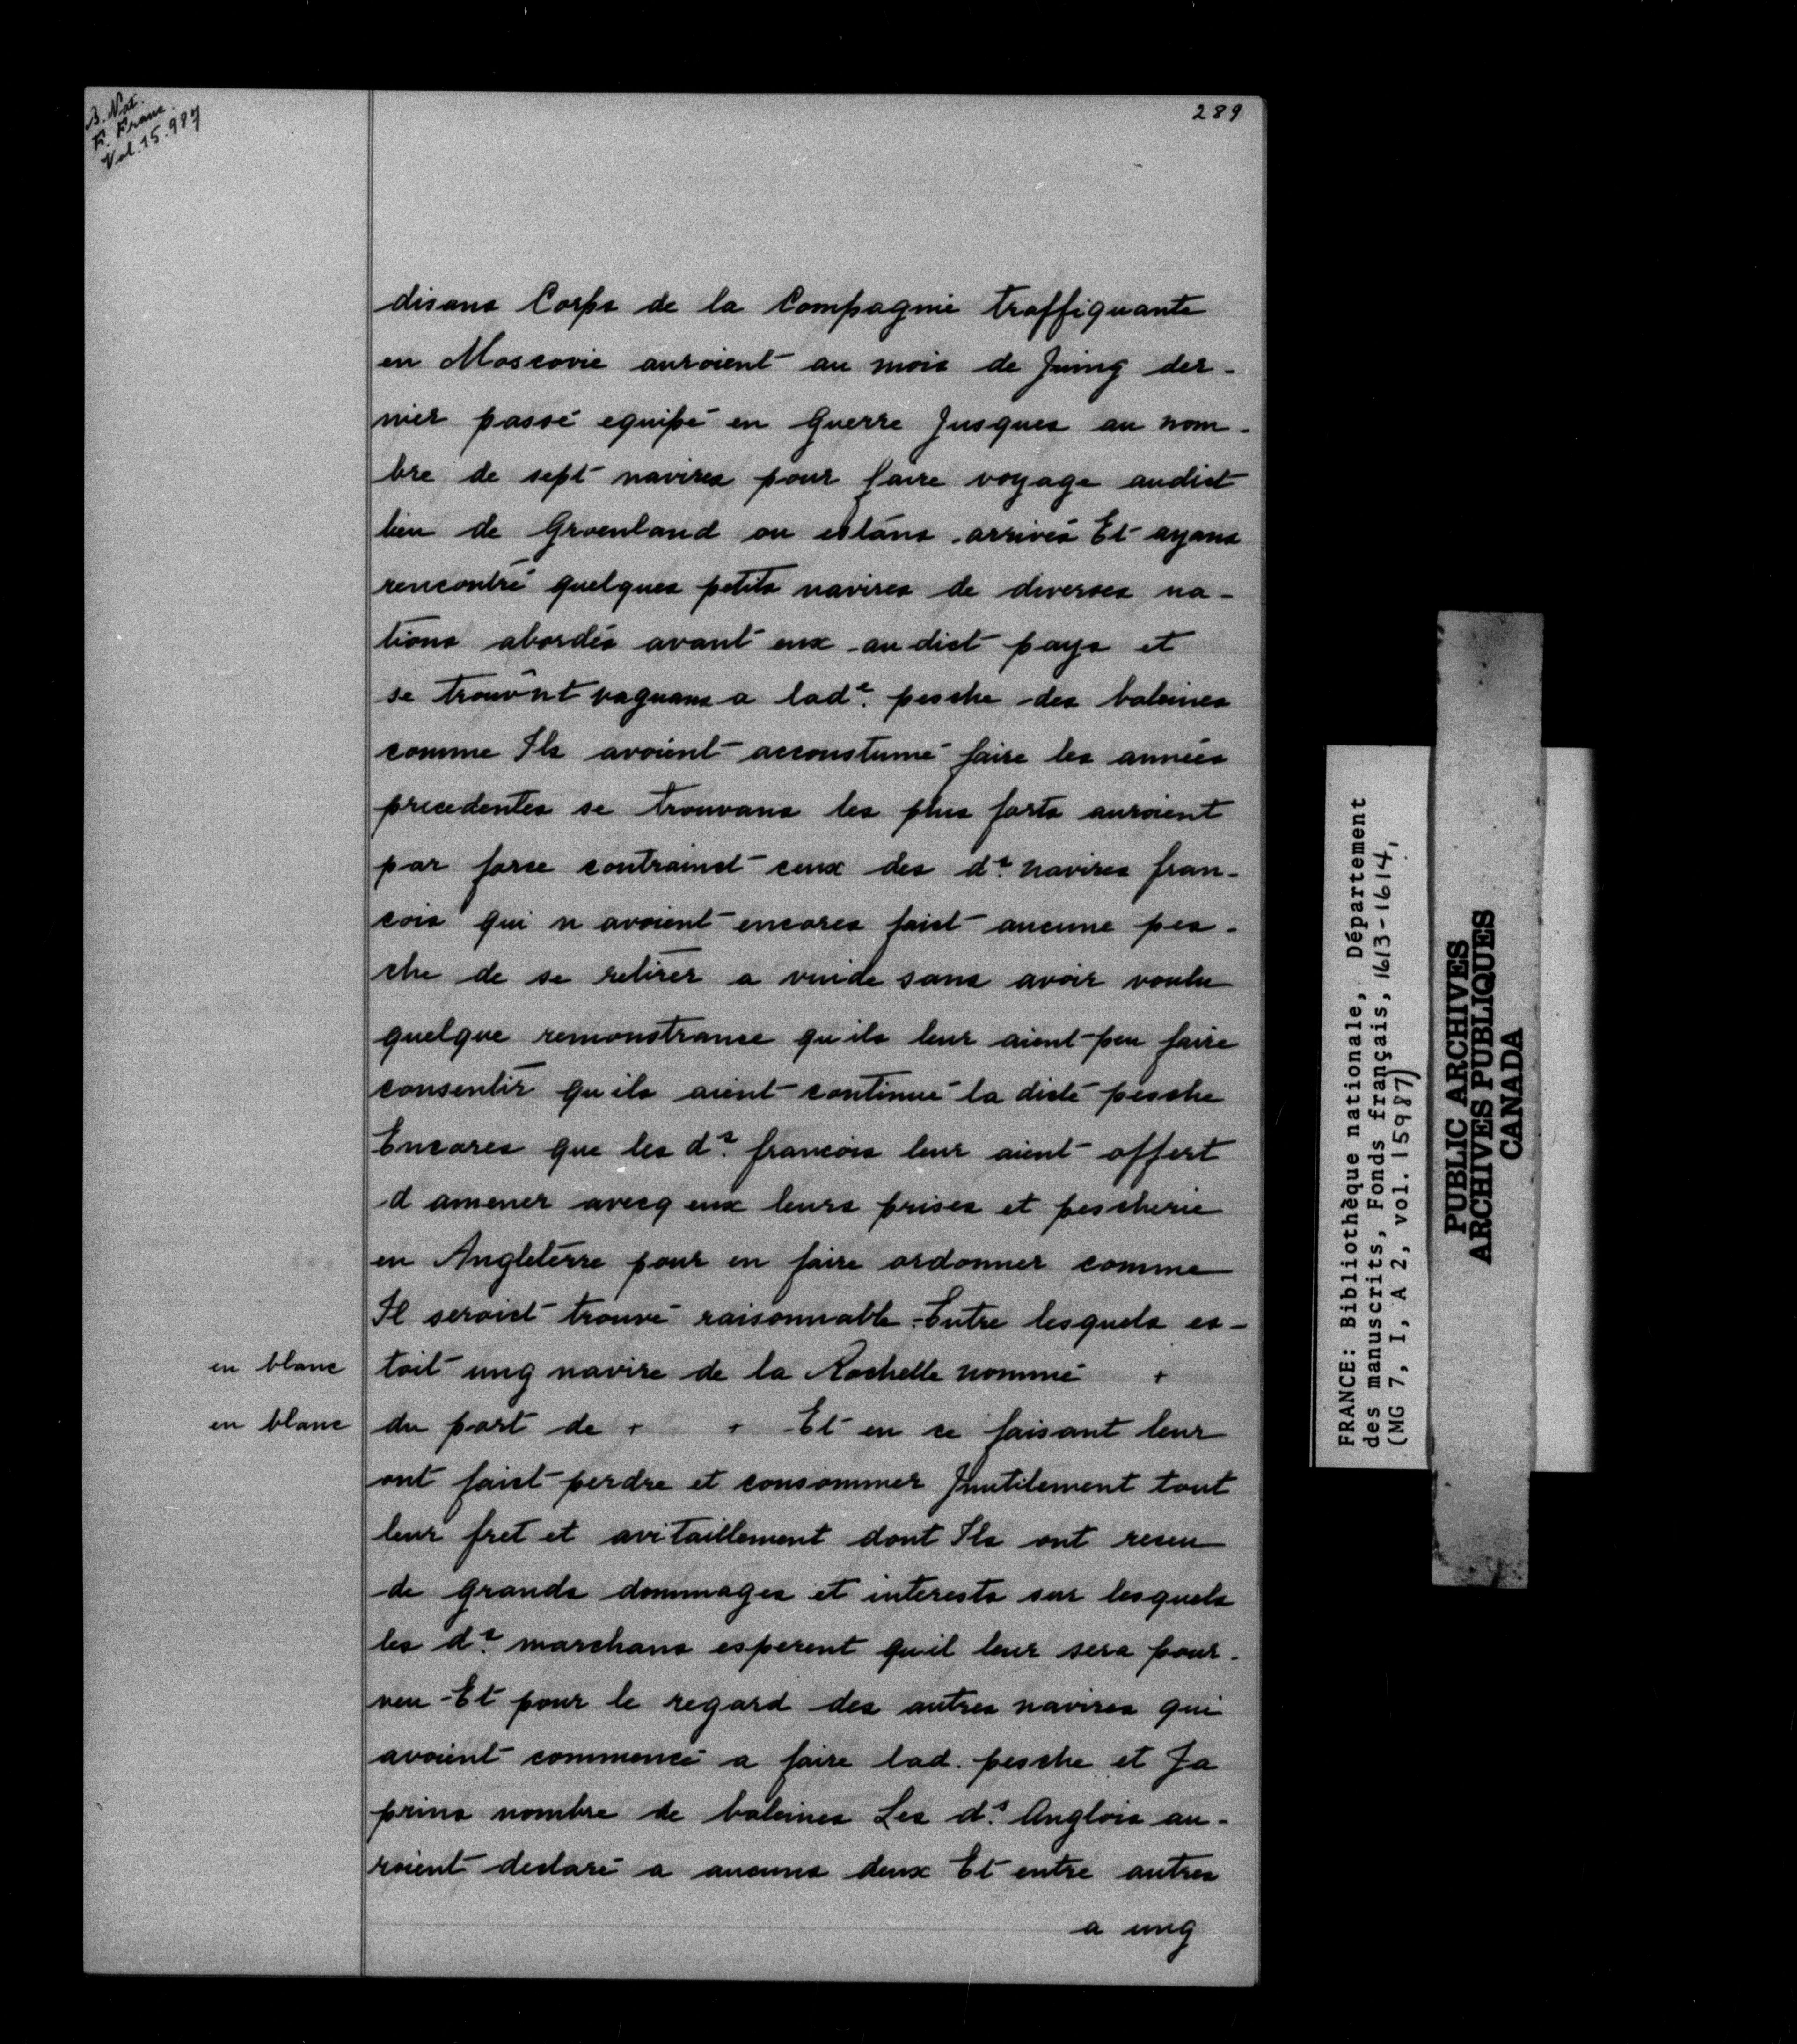 B. Nat.
F. Franc.
Vol. 15.987
289
disans Corps de la Compagnie traffiquante
en Moscovie auroient au mois de Juing der-
nier passé equipé en guerre Jusques au nom-
bre de sept navires pour faire voyage audict
lieu de Groenland ou estans arrivés Et ayans
rencontré quelques petits navires de diverses na-
tions abordés avant eux au dict pays et
se trouvnt vaguans a lade. pesche des baleines
comme Ils avoient accoustumé faire les années
precedentes se trouvans les plus forts auroient
par force contrainct ceux des ds. navires fran-
cois qui n avoient encores faict aucune pes-
che de se retirer a vuide sans avoir voulu
quelque remonstrance qu ils leur aient peu faire
consentir qu ils aient continué la dicte pesche
Encores que les ds. francois leur aient offert
d amener avecq eux leurs prises et pescherie
en Angleterre pour en faire ordonner comme
Il seroict trouvé raisonnable Entre lesquels es-
en blanc toit ung navire de la Rochelle nommé +
en blanc du port de + + Et en ce faisant leur
ont faict perdre et consommer Jnutilement tout
leur fret et avitaillement dont Ils ont receu
de grands dommages et interests sur lesquels
les ds. marchans esperent qu il leur sera pour-
veu Et pour le regard des autres navires qui
avoient commencé a faire lad. pesche et Ja
prins nombre de baleines Les ds. Anglois au-
roient declaré a aucuns deux Et entre autres
a ung
FRANCE: Bibliothèque nationale, Département
des manuscrits, Fonds français, 1613-1614,
(MG 7, I, A 2, vol. 15987)
PUBLIC ARCHIVES
ARCHIVES PUBLIQUES
CANADA